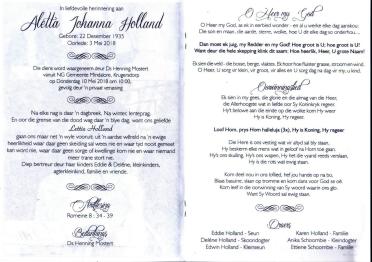 In liefdevolle herinnering aan
Aletta Johanna Holland
Gebore: 22 Desember 1935
Oorlede: 3 Mei 2018
Die diens word waargeneem deur Ds Henning Mostert
vanuit NG Gemeente Mindalore, Krugersdorp
op Donderdag 10 Mei 2018 om 10:00,
gevolg deur 'n privaat verassing
Na elke nag is daar 'n dagbreek, Na winter, lenteprag,
En oor die grense van die dood wag daar 'n blye dag, want ons geliefde
Lettie Holland
gaan ons maar net 'n wyle vooruit; uit 'n aardse woning na 'n ewige
heerlikheid waar daar geen skeiding sal wees nie en waar tyd nooit gemeet
kan word nie, waar daar geen sorge of kwellinge kom nie en waar niemand
meer trane stort nie.
Diep betreur deur haar kinders Eddie & Delène, kleinkinders,
agterkleinkind, familie en vriende.
Romeine 8 : 34 - 39
Bedanking
Ds Henning Mostert
O Heer my God
O Heer my God, as ek in eerbied wonder - en al u werke elke dag aanskou:
Die son en maan, die aarde, sterre, wolke, hoe U dit elke dag so onderhou...
Dan moet ek juig, my Redder en my God! Hoe groot is U; hoe groot is U!
Want deur die hele skepping klink dit saam: Hoe heerlik, Heer, U grote Naam!
Ek sien die veld - die bosse, berge, vlaktes. Ek hoor hoe fluister grasse, stroom en wind.
O Heer, U sorg vir klein, vir groot, vir alles en U sorg dag na dag vir my, u kind.
Oorwinningslied
Ek sien in my gees, die glorie en die almag van die Heer
die Allerhoogste wat in liefde oor Sy Koninkryk regeer.
Hy't belowe aan die einde op die wolke kom Hy weer
Hy is Koning, Hy regeer
Loof Hom, prys Hom halleluja (3x), Hy is Koning, Hy regeer
Die Here is ons vesting wat vir altyd sal bly staan.
Hy beskerm elke mens wat in geloof na Hom toe gaan.
Hy's ons skuiling, Hy's ons wapen, Hy het die vyand reeds verslaan,
Hy is die rots waarop ons staan
Kom deel nou in ons loflied, hef jou hande op na bo.
Blaas basuine, slaan op tromme en kom dans voor God se oë
Kom leef in die oorwinning van Sy woord waarin ons glo.
Want Sy Gees woon in ons
Eddie Holland - Seun
Delène Holland - Skoondogter
Edwin Holland - Kleinseun
Karen Holland - Familie
Anika Schoombie - Kleindogter
Ettiene Schoombie - Familie